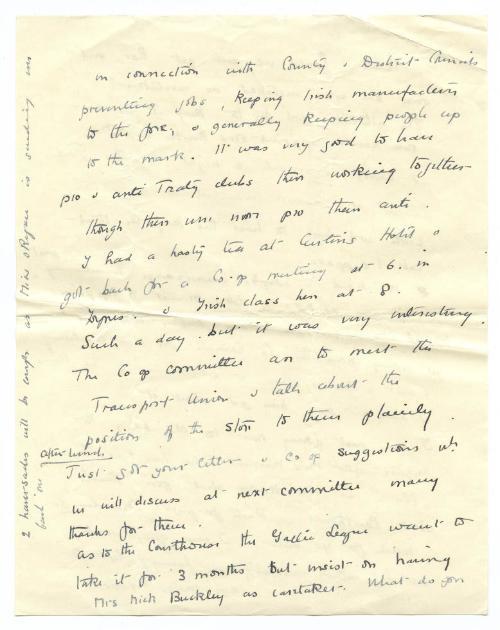 in connection with County & District Councils
preventing jobs, keeping Irish manufacture
to the fore, & generally keeping people up
to the mark. It was very good to have
pro & anti Treaty clubs then working together
though there were more pro than anti.
I had a hasty tea at Hotel &
got back for a Co-op meeting at 6. in
& Irish class here at 8.
Such a day. but it was very interesting.
The Co op committee are to meet the
Transport Union & talk about the
position of the store to them plainly.
after lunch
Just got your letter & Co op suggestions wh.
we will discuss at next committee many
thanks for them.
as to the Courthouse the Gaelic League want to
take it for 3 months but insist on having
Mrs Mick Buckley as caretaker. What do you
2 haversacks will be enough as Miss O'Regan is sending me
back one